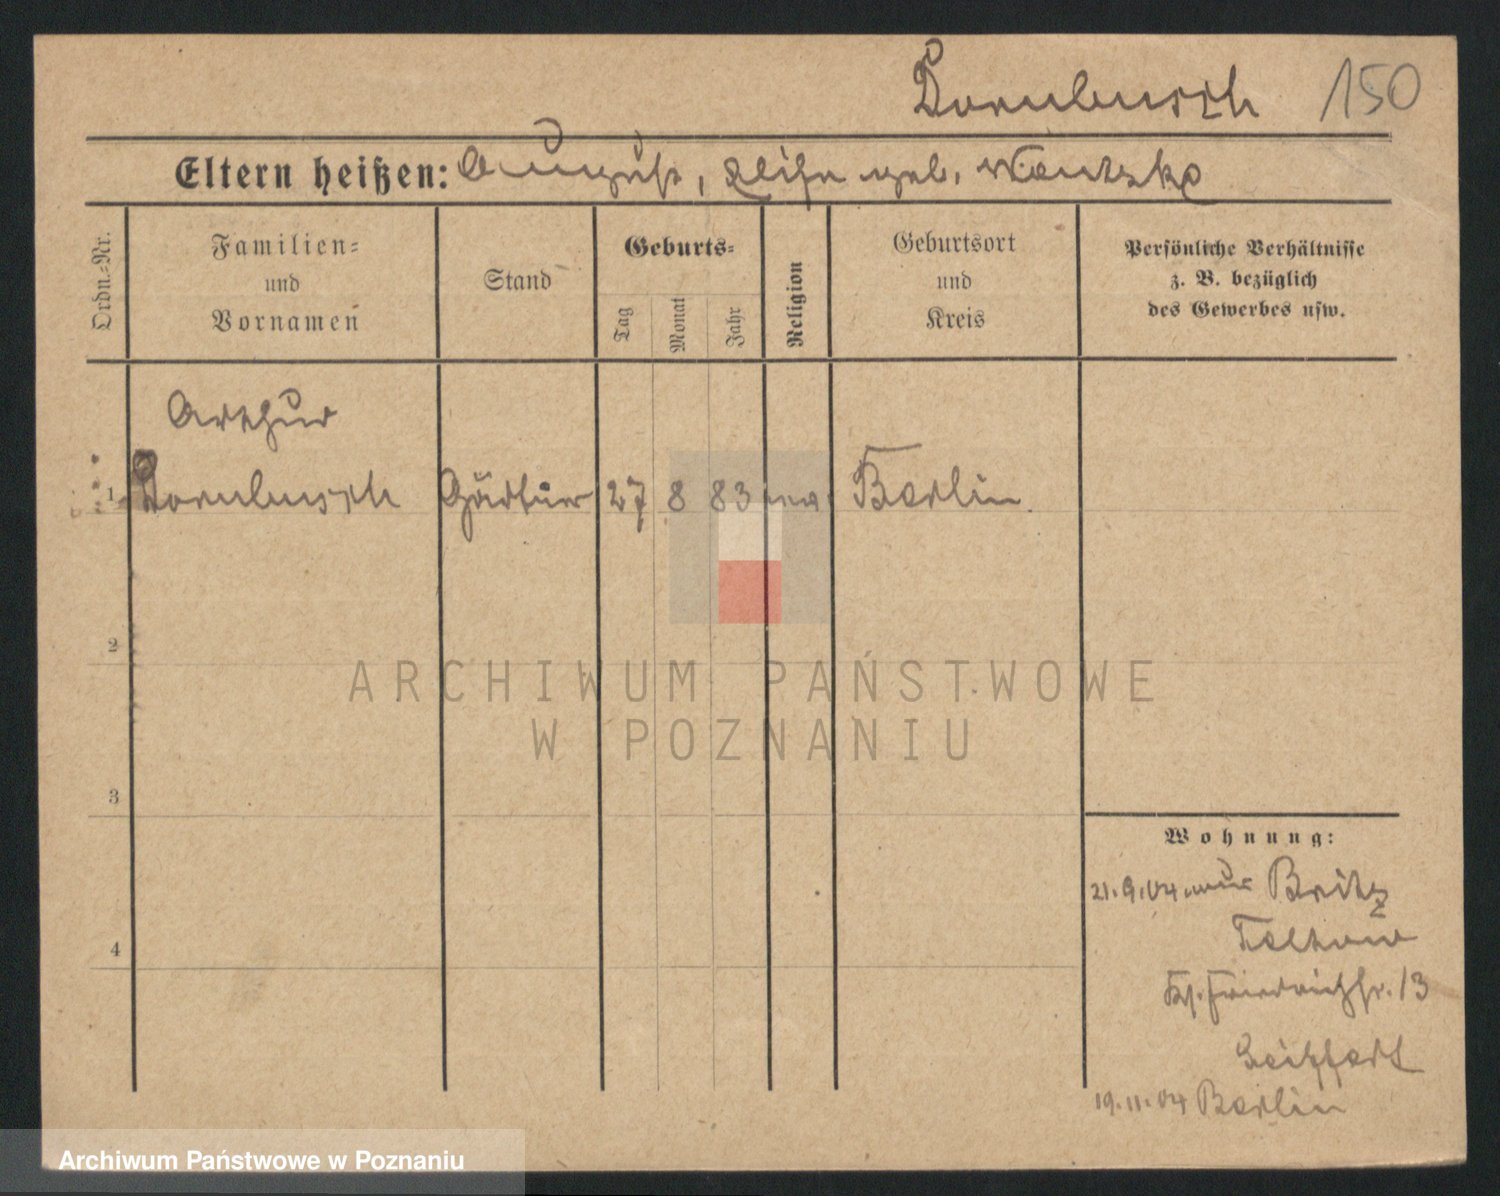 Dornbusch 150
Eltern heißen: August, Luise geb. Wantzke
Ordn.=Nr.
Familien=
und
Vornamen
Stand
Geburts=
Tag
Monat
Jahr
Religion
Geburtsort
und
Kreis
Persönliche Verhältnisse
z. B. bezüglich
des Gewerbes usw.
Arthur
1 Dornbusch Gärtner 27 8 83 Berlin
2
ARCHIWUM PAŃSTWOWE
W POZNANIU
3
Wohnung:
21.9.04 Britz
Teltow
4
13
19.11.04 Berlin
Archiwum Państwowe w Poznaniu